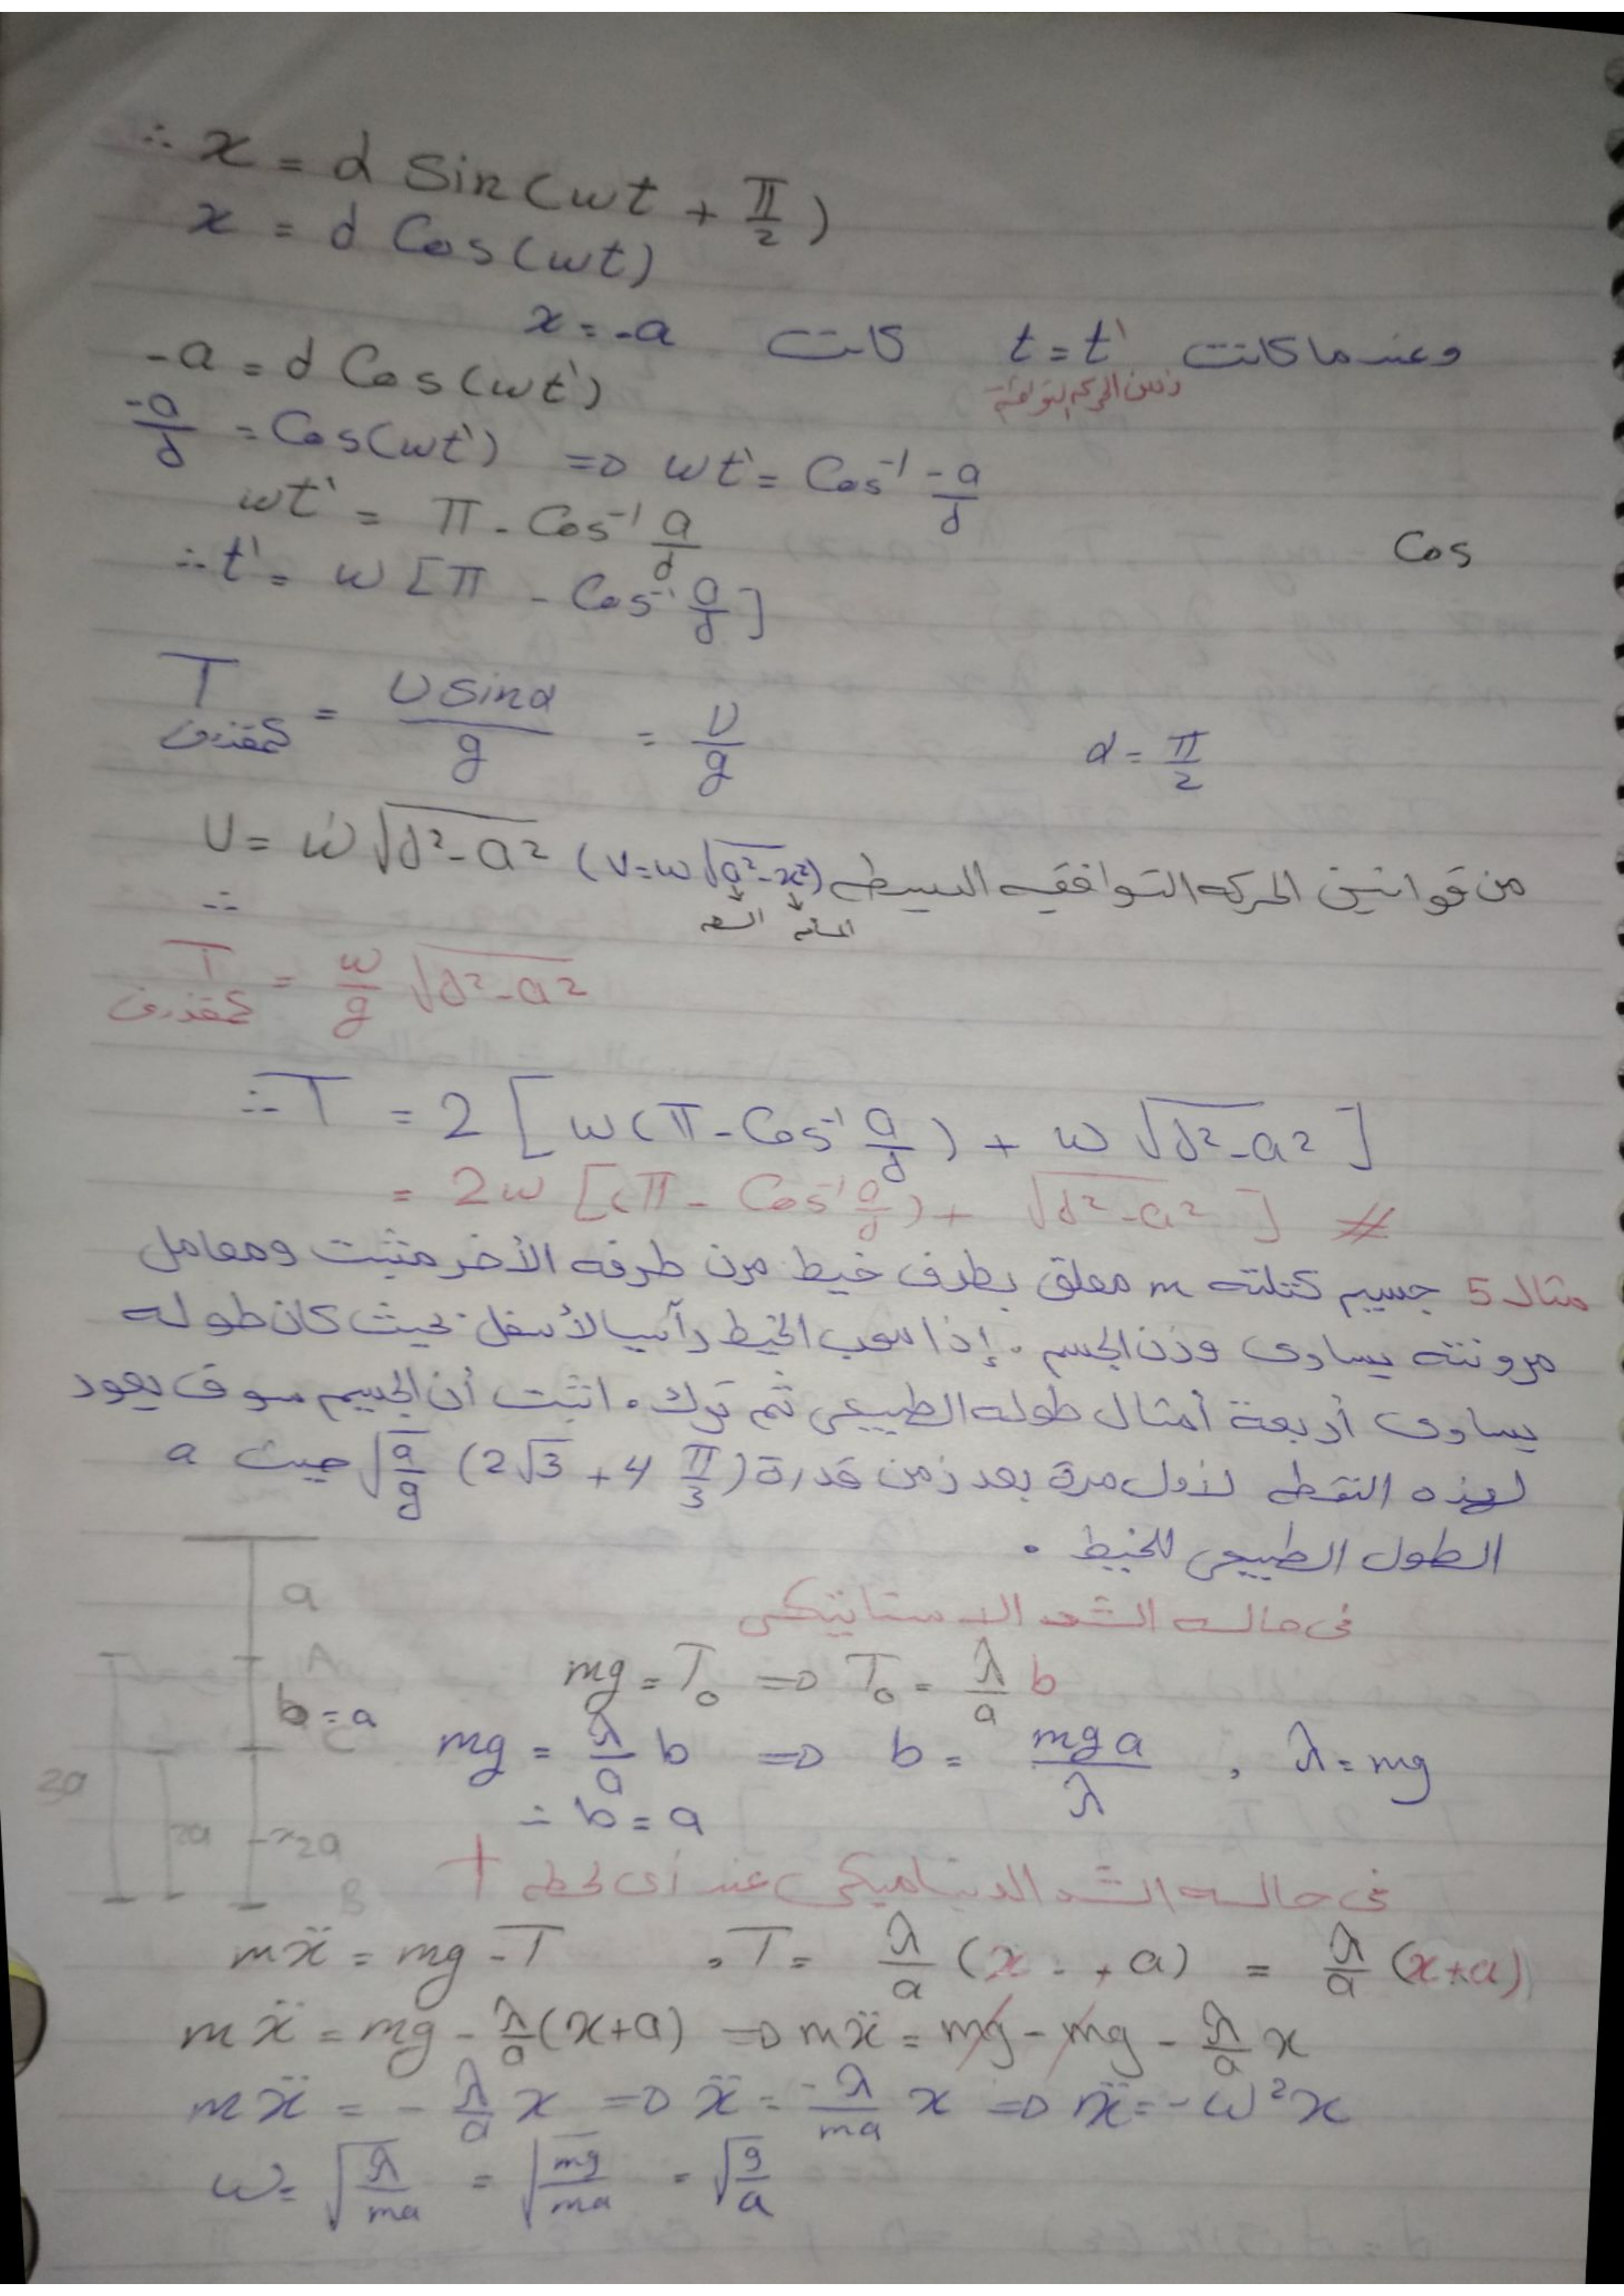 ∴ x = d Sin(ωt + π/2)
x = d Cos(ωt)
وعندما كانت t = t' كانت x = -a
زمن الحركه التوافقية
-a = d Cos(ωt')
-a/d = Cos(ωt') => ωt' = Cos⁻¹ -a/d
ωt' = π - Cos⁻¹ a/d
Cos
∴ t' = ω [π - Cos⁻¹ a/d]
T كمقذوف = U Sinα / g = U/g α = π/2
U = ω √(d² - a²) (V = ω √(a² - x²)) من قوانين الحركه التوافقيه البسيطه
∴ السعه المسافه
T كمقذوف = ω/g √(d² - a²)
∴ T = 2 [ω(π - Cos⁻¹ a/d) + ω √(d² - a²)]
= 2ω [(π - Cos⁻¹ a/d) + √(d² - a²)] #
مثال 5 جسيم كتلته m معلق بطرف خيط مرن طرفه الأخر مثبت ومعامل
مرونته يساوى وزن الجسم . إذا سحب الخيط رآسيا لأسفل بحيث كان طوله
يساوى أربعة أمثال طوله الطبيعى ثم ترك . اثبت أن الجسيم سوف يعود
لهذه النقطه لأول مرة بعد زمن قدرة (2√3 + 4 π/3) √(a/g) حيث a
الطول الطبيعى للخيط .
فى حاله الشد الاستاتيكى
a
A
mg = T₀ => T₀ = λ/a b
b = a
C
mg = λ/a b => b = mga/λ , λ = mg
3a
∴ b = a
2a x 2a
B
فى حاله الشد الديناميكى عند أى لحظه t
mẍ = mg - T , T = λ/a (x + a) = λ/a (x+a)
mẍ = mg - λ/a (x+a) => mẍ = mg - mg - λ/a x
mẍ = - λ/a x => ẍ = -λ/ma x => ẍ = -ω²x
ω = √(λ/ma) = √(mg/ma) = √(g/a)